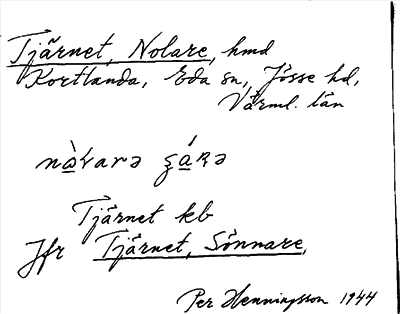 Tjärnet, Nolare, hmd
Kortlanda, Eda sn, Jösse hd,
Värml. län
Tjärnet kb
Jfr Tjärnet, Sönnare,
Per Henningsson 1944